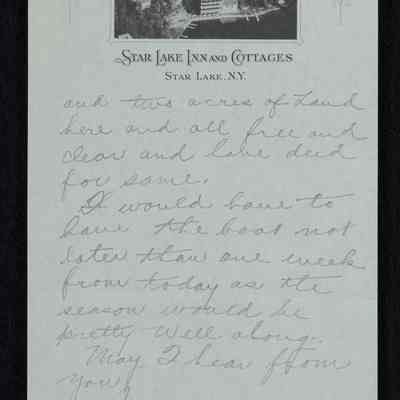 STAR LAKE INN AND COTTAGES
STAR LAKE, N.Y.
and two acres of Land
here and all free and
clear and have deed
for same.
I would have to
have the boat not
later than one week
from today as the
season would be
pretty well along.
May I hear from
you?